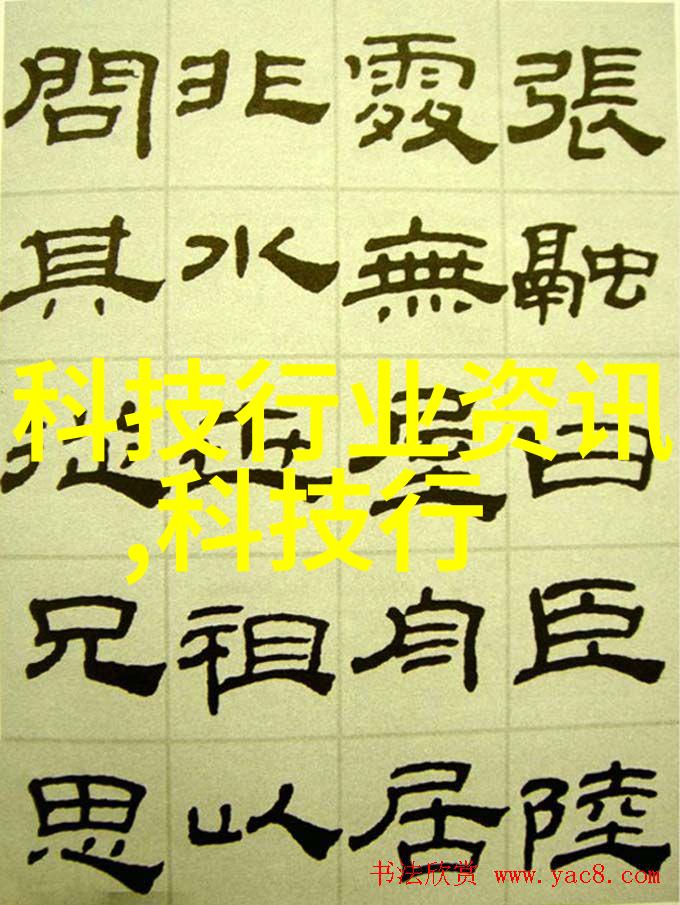 張融白臣陸
處無屋舟居
非水祖以
問其從兄思
科技行业资讯
,科技行
书法欣赏 www.yac8.com